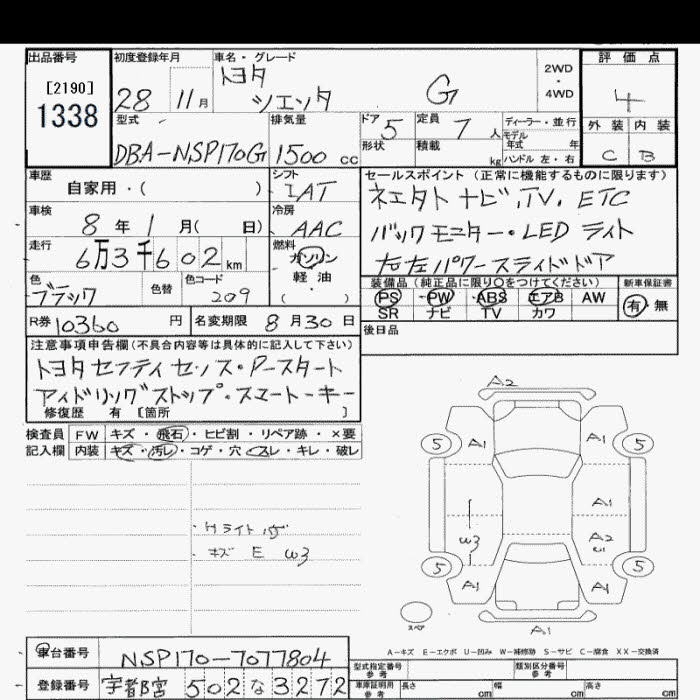 出品番号
[2190]
1338
初度登録年月
28 11月
車名・グレード
トヨタ
シエンタ G
2WD
・
4WD
評価点
4
外装 内装
C B
型式
DBA-NSP170G
排気量
1500 cc
ドア 5
定員 7 人
形状
積載 kg
ディーラー・並行
モデル
年式 年
ハンドル 左・右
車歴
自家用・( )
シフト
IAT
車検
8年1月( 日)
冷房
AAC
走行
6万3千602km
燃料
ガソリン
軽・油
( )
色
ブラック
色替
色コード
209
R券 10360 円
名変期限 8月30日
セールスポイント (正常に機能するものに限ります)
ネエタト ナビ、TV、ETC
バックモニター・LED ライト
右左パワースライドドア
装備品 (純正品に限り○をつけてください)
PS PW ABS エアB AW
SR ナビ TV カワ
新車保証書
有・無
後日品
注意事項申告欄 (不具合内容等は具体的に記入して下さい)
トヨタセフティセンス・Pースタート
アイドリングストップ・スエートーキー
修復歴 有 [箇所 ]
検査員 FW キズ・飛石・ヒビ割・リペア跡・×要
記入欄 内装 キズ・汚レ・コゲ・穴・スレ・キレ・破レ
・Hライト
・キズ E W3
A2
5 A1 A1 5
A1
W3 A2
5 A1 A1 5
スペア
A1
A-キズ E-エクボ U-凹み W-補修跡 S-サビ C-腐食 XX-交換済
車台番号 NSP170-7077804
登録番号 宇都宮 502 な 3272
型式指定番号
参考
類別区分番号
参考
車庫証明用
参考
長さ cm 幅 cm 高さ cm